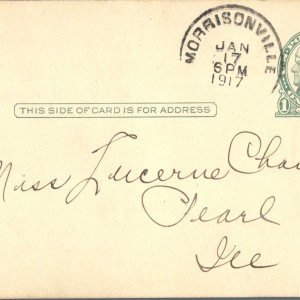 MORRISONVILLE
JAN
17
6PM
1917
1
THIS SIDE OF CARD IS FOR ADDRESS
Miss Lucerne Cha
Pearl
Ill